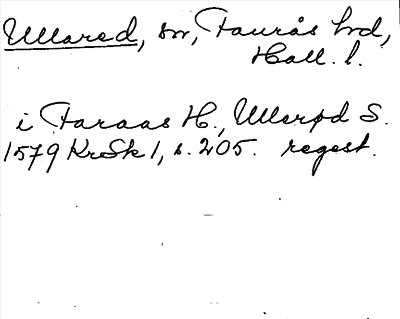 Ullared, sn, Faurås hrd,
Hall. l.
i Faraas H., Ullerød S.
1579 KrSk 1, s. 205. regest.